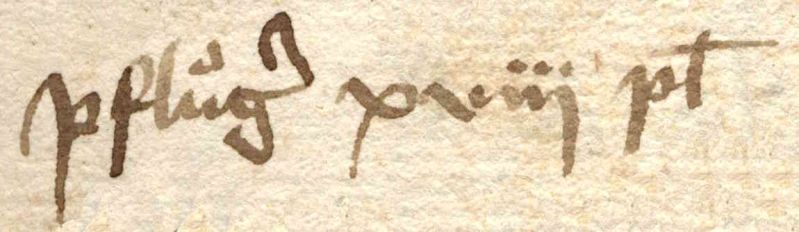 pflůg' xviij pł